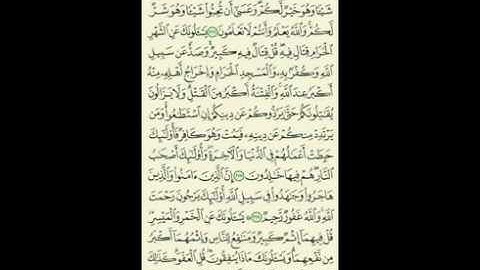 شَيْـًٔا وَهُوَ خَيْرٌ لَّكُمْ ۖ وَعَسَىٰٓ أَن تُحِبُّوا۟ شَيْـًٔا وَهُوَ شَرٌّ
لَّكُمْ ۗ وَٱللَّهُ يَعْلَمُ وَأَنتُمْ لَا تَعْلَمُونَ ٢١٦ يَسْـَٔلُونَكَ عَنِ ٱلشَّهْرِ
ٱلْحَرَامِ قِتَالٍ فِيهِ ۖ قُلْ قِتَالٌ فِيهِ كَبِيرٌ ۖ وَصَدٌّ عَن سَبِيلِ
ٱللَّهِ وَكُفْرٌۢ بِهِۦ وَٱلْمَسْجِدِ ٱلْحَرَامِ وَإِخْرَاجُ أَهْلِهِۦ مِنْهُ
أَكْبَرُ عِندَ ٱللَّهِ ۚ وَٱلْفِتْنَةُ أَكْبَرُ مِنَ ٱلْقَتْلِ ۗ وَلَا يَزَالُونَ
يُقَٰتِلُونَكُمْ حَتَّىٰ يَرُدُّوكُمْ عَن دِينِكُمْ إِنِ ٱسْتَطَٰعُوا۟ ۚ وَمَن
يَرْتَدِدْ مِنكُمْ عَن دِينِهِۦ فَيَمُتْ وَهُوَ كَافِرٌ فَأُو۟لَٰٓئِكَ
حَبِطَتْ أَعْمَٰلُهُمْ فِى ٱلدُّنْيَا وَٱلْـَٔاخِرَةِ ۖ وَأُو۟لَٰٓئِكَ أَصْحَٰبُ
ٱلنَّارِ ۖ هُمْ فِيهَا خَٰلِدُونَ ٢١٧ إِنَّ ٱلَّذِينَ ءَامَنُوا۟ وَٱلَّذِينَ
هَاجَرُوا۟ وَجَٰهَدُوا۟ فِى سَبِيلِ ٱللَّهِ أُو۟لَٰٓئِكَ يَرْجُونَ رَحْمَتَ
ٱللَّهِ ۚ وَٱللَّهُ غَفُورٌ رَّحِيمٌ ٢١٨ يَسْـَٔلُونَكَ عَنِ ٱلْخَمْرِ وَٱلْمَيْسِرِ ۖ
قُلْ فِيهِمَآ إِثْمٌ كَبِيرٌ وَمَنَٰفِعُ لِلنَّاسِ وَإِثْمُهُمَآ أَكْبَرُ
مِن نَّفْعِهِمَا ۗ وَيَسْـَٔلُونَكَ مَاذَا يُنفِقُونَ قُلِ ٱلْعَفْوَ ۗ كَذَٰلِكَ